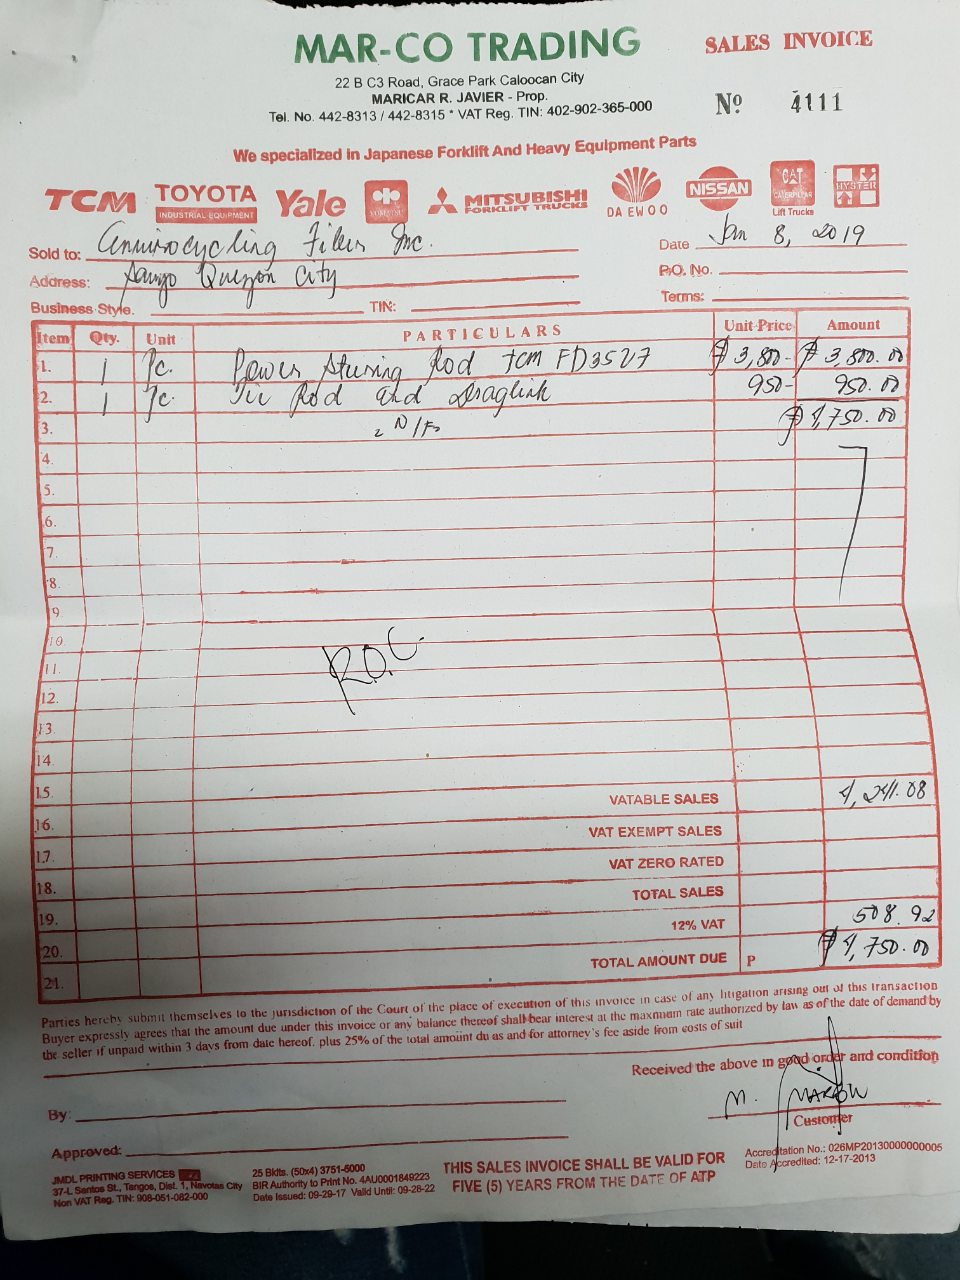 MAR-CO TRADING
22 B C3 Road, Grace Park Caloocan City
MARICAR R. JAVIER - Prop.
Tel. No. 442-8313 / 442-8315 * VAT Reg. TIN: 402-902-365-000
SALES INVOICE
Nº 4111
We specialized in Japanese Forklift And Heavy Equipment Parts
TCM TOYOTA INDUSTRIAL EQUIPMENT Yale KOMATSU MITSUBISHI FORKLIFT TRUCKS DAEWOO NISSAN CAT CATERPILLAR Lift Trucks HYSTER
Sold to: Filers Inc. Date Jan 8, 2019
Address: Quezon City P.O. No.
Business Style. TIN: Terms:
Item Qty. Unit PARTICULARS Unit Price Amount
1. 1 Pc. Power Stering Rod TCM FD35Z7 ₱ 3,800- ₱ 3,800.00
2. 1 Pc. Tie Rod and Draglink 950- 950.00
3. N/F ₱ 4,750.00
4.
5.
6.
7.
8.
9
10.
11.
12.
13.
14.
15. VATABLE SALES 4,241.08
16. VAT EXEMPT SALES
17. VAT ZERO RATED
18. TOTAL SALES
19. 12% VAT 508.92
20. TOTAL AMOUNT DUE P ₱ 4,750.00
21.
R.O.C.
Parties hereby submit themselves to the jurisdiction of the Court of the place of execution of this invoice in case of any litigation arising out of this transaction
Buyer expressly agrees that the amount due under this invoice or any balance thereof shall bear interest at the maxmum rate authorized by law as of the date of demand by
the seller if unpaid within 3 days from date hereof, plus 25% of the total amount du as and for attorney's fee aside from costs of suit
Received the above in good order and condition
By:
M.
Customer
Approved:
JMDL PRINTING SERVICES
37-L Santos St., Tangos, Dist. 1, Navotas City
Non VAT Reg. TIN: 908-051-082-000
25 Bklts. (50x4) 3751-5000
BIR Authority to Print No. 4AU0001849223
Date Issued: 09-29-17 Valid Until: 09-28-22
THIS SALES INVOICE SHALL BE VALID FOR
FIVE (5) YEARS FROM THE DATE OF ATP
Accreditation No.: 026MP20130000000005
Date Accredited: 12-17-2013